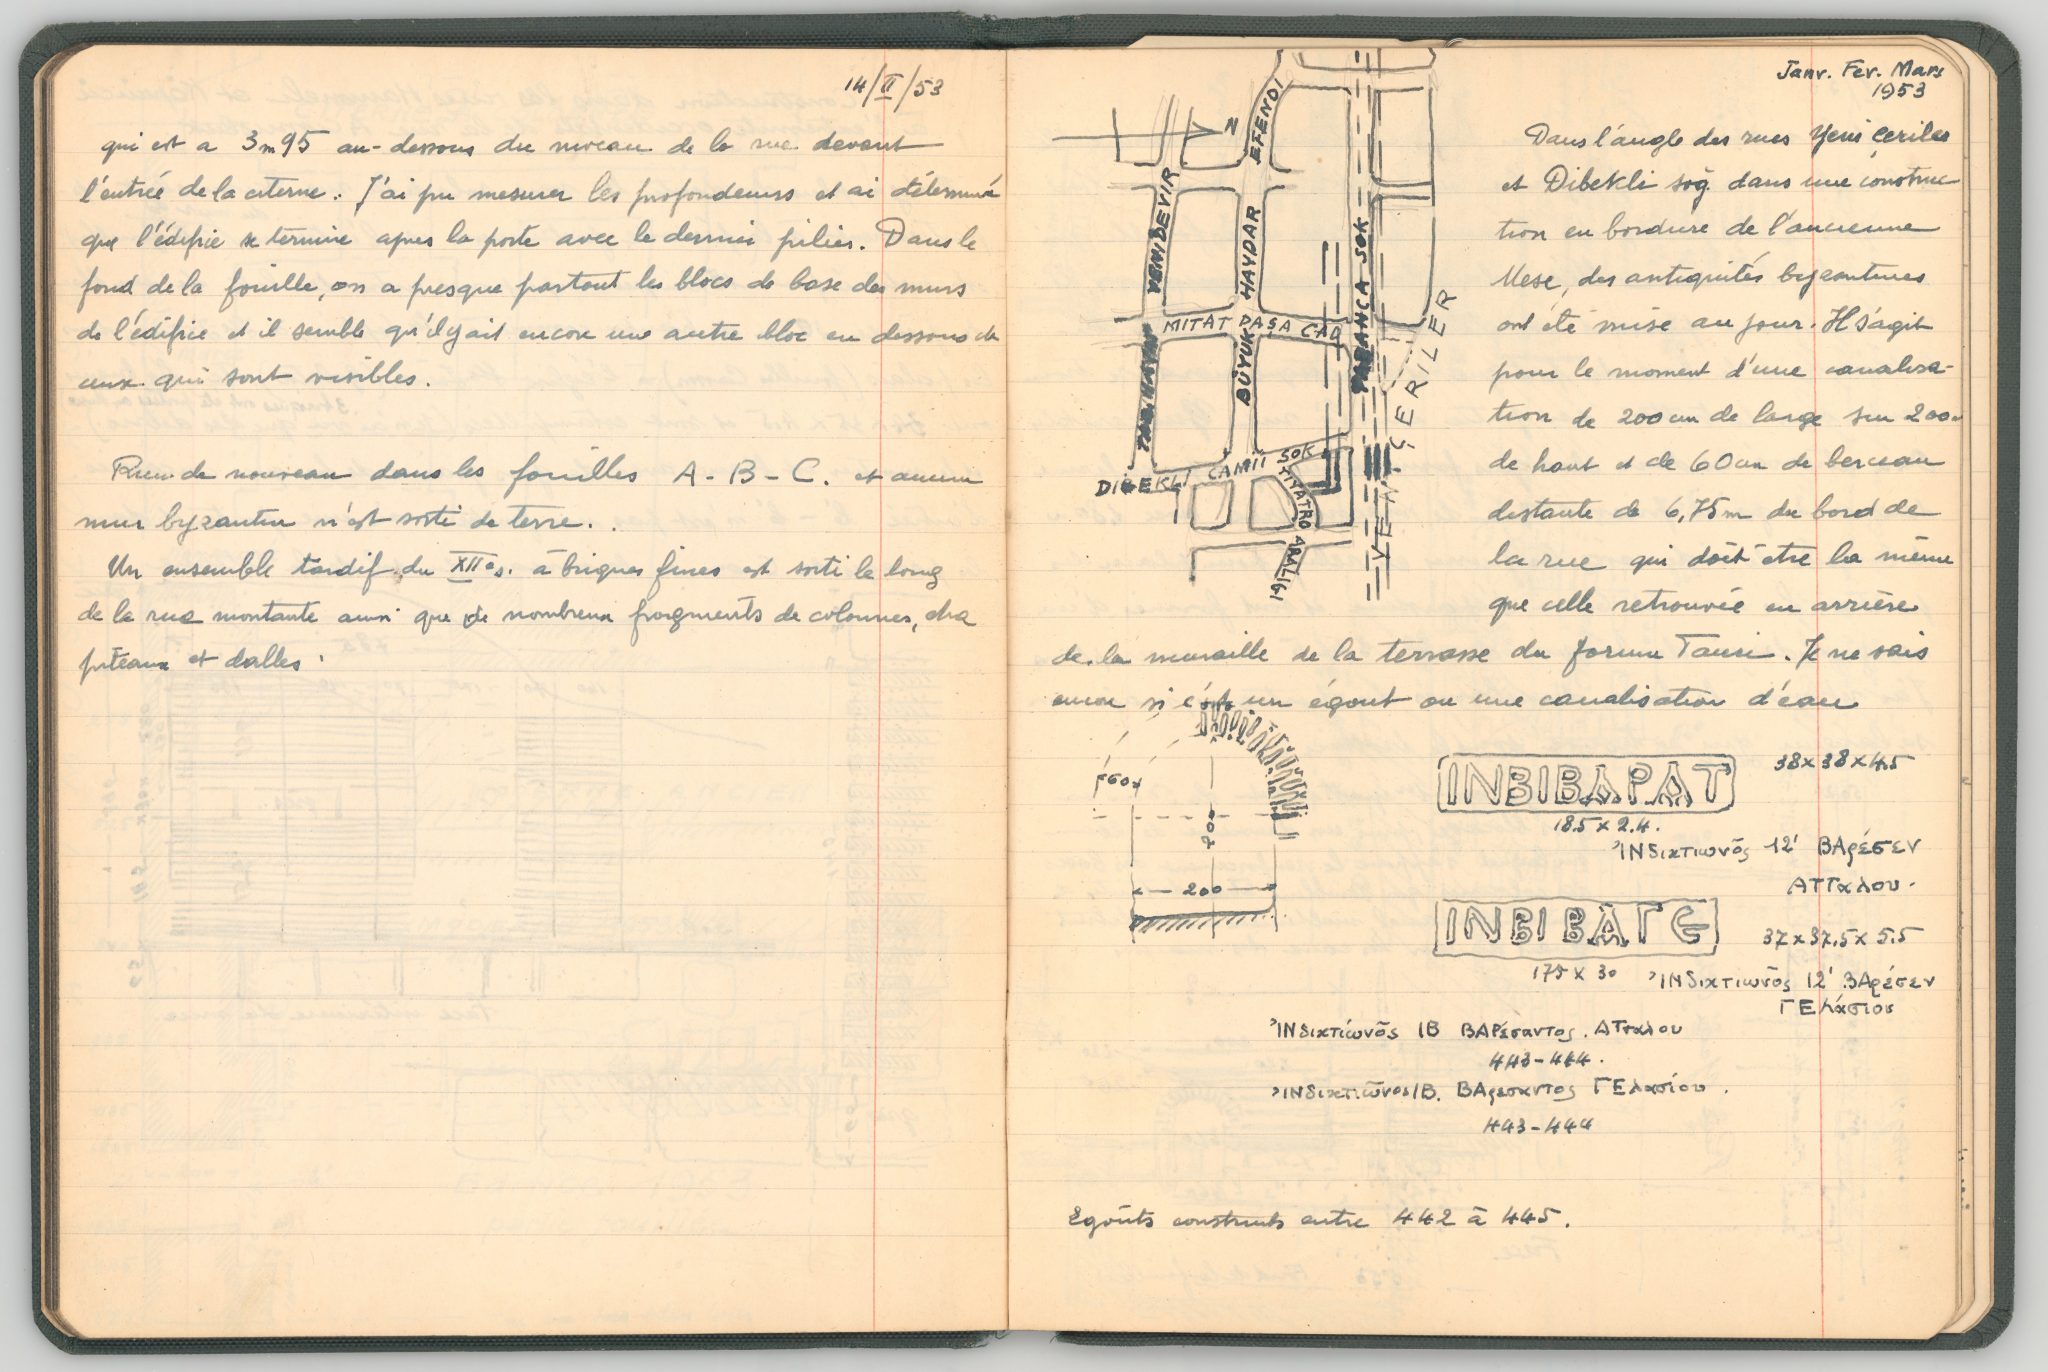 14/II/53
qui est a 3m95 au-dessous du niveau de la rue devant
l'entrée de la citerne. J'ai pu mesurer les profondeurs et ai déterminé
que l'édifice se termine apres la porte avec le dernier pilier. Dans le
fond de la fouille, on a presque partout les blocs de base des murs
de l'édifice et il semble qu'il y ait encore une autre bloc en dessous de
ceux qui sont visibles.
Rien de nouveau dans les fouilles A-B-C. et aucun
mur byzantin n'est sorti de terre.
Un ensemble tardif du XIIe s. à briques fines est sorti le long
de la rue montante ainsi que de nombreux fragments de colonnes, cha
piteaux et dalles.
Janv. Fev. Mars
1953
Dans l'angle des rues Yeni Çeriler
et Dibekli soğ. dans une construc
tion en bordure de l'ancienne
Mese, des antiquités byzantines
ont été mise au jour. Il s'agit
pour le moment d'une canalisa-
tion de 200 cm de large sur 200
de haut et de 60 cm de berceau
distante de 6,75m du bord de
la rue qui doit être la même
que celle retrouvée en arrière
de la muraille de la terrasse du forum Tauri. Je ne sais
encore si c'est un égout ou une canalisation d'eau
N
EFENDI
YENIDEVIR
BÜYÜK HAYDAR
MITAT PAŞA CAD
SOK
YENI ÇERILER
DIBEKLI CAMII SOK
TIYATRO ARALIGI
60
200
200
INBIBAPAT
38x38x4.5
18.5 x 2.4.
Ἰνδικτιωνος 12' ΒΑρέσεν
ΑΤΤαλου.
INBIBAΓE
37x37.5x5.5
175 x 30
Ἰνδικτιωνος 12' ΒΑρέσεν
ΓΕλάσιου
Ἰνδικτιωνος ΙΒ ΒΑΡέσαντος. ΑΤταλου
443-444.
Ἰνδικτιωνος ΙΒ. ΒΑρεσαντος ΓΕλασίου.
443-444
Egouts construits entre 442 à 445.